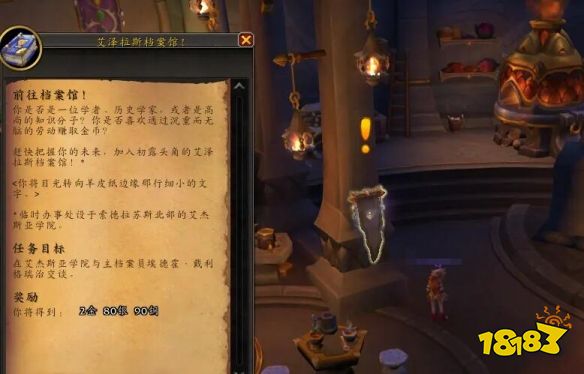 艾泽拉斯档案馆！
前往档案馆！
你是否是一位学者、历史学家，或者是高
尚的知识分子？你是否喜欢透过沉重而无
脑的劳动赚取金币？
赶快把握你的未来，加入初露头角的艾泽
拉斯档案馆！*
<你将目光转向羊皮纸边缘那行细小的文
字。>
*临时办事处设于索德拉苏斯北部的艾杰
斯亚学院。
任务目标
在艾杰斯亚学院与主档案员埃德霍·戴利
格瑞治交谈。
奖励
你将得到： 2金 80银 90铜
18183